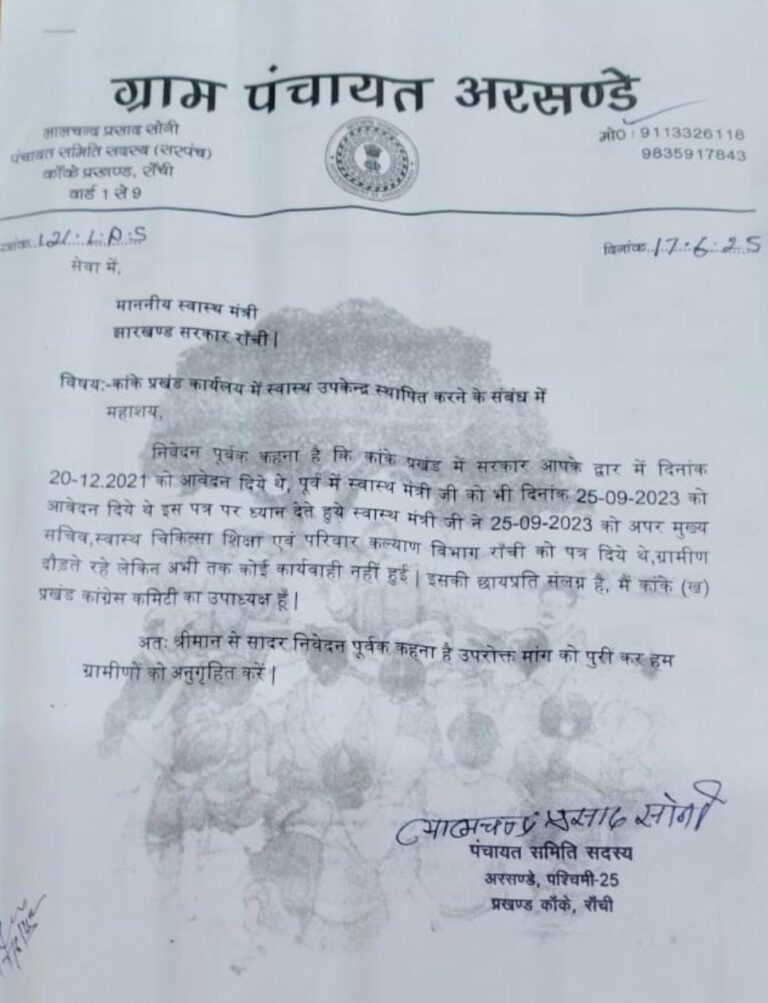 ग्राम पंचायत अरसण्डे
लालचन्द प्रसाद सोनी
पंचायत समिति सदस्य (सरपंच)
काँके प्रखण्ड, राँची
वार्ड 1 से 9
मो० : 9113326118
9835917843
पत्रांक 121.L.P.S
दिनांक 17.6.25
सेवा में,
माननीय स्वास्थ मंत्री
झारखण्ड सरकार राँची|
विषय:-कांके प्रखंड कार्यलय में स्वास्थ उपकेन्द्र स्थापित करने के संबंध में
महाशय,
निवेदन पूर्वक कहना है कि कांके प्रखंड में सरकार आपके द्वार में दिनांक
20-12.2021 को आवेदन दिये थे, पूर्व में स्वास्थ मंत्री जी को भी दिनांक 25-09-2023 को
आवेदन दिये थे इस पत्र पर ध्यान देते हुये स्वास्थ मंत्री जी ने 25-09-2023 को अपर मुख्य
सचिव,स्वास्थ चिकित्सा शिक्षा एवं परिवार कल्याण विभाग राँची को पत्र दिये थे,ग्रामीण
दौड़ते रहे लेकिन अभी तक कोई कार्यवाही नहीं हुई| इसकी छायप्रति संलग्न है, मैं कांके (ख)
प्रखंड कांग्रेस कमिटी का उपाध्यक्ष हूँ|
अतः श्रीमान से सादर निवेदन पूर्वक कहना है उपरोक्त मांग को पुरी कर हम
ग्रामीणों को अनुगृहित करें|
लालचन्द्र प्रसाद सोनी
पंचायत समिति सदस्य
अरसण्डे, पश्चिमी-25
प्रखण्ड काँके, राँची